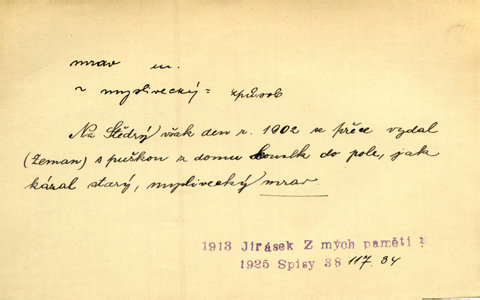 mrav m.
~ myslivecký = způsob
Na Štědrý však den r. 1902 se přece vydal
(Zeman) s puškou z domu kousek do pole, jak
kázal starý, myslivecký mrav.
1913 Jirásek Z mých pamětí
1925 Spisy 38 117. 84